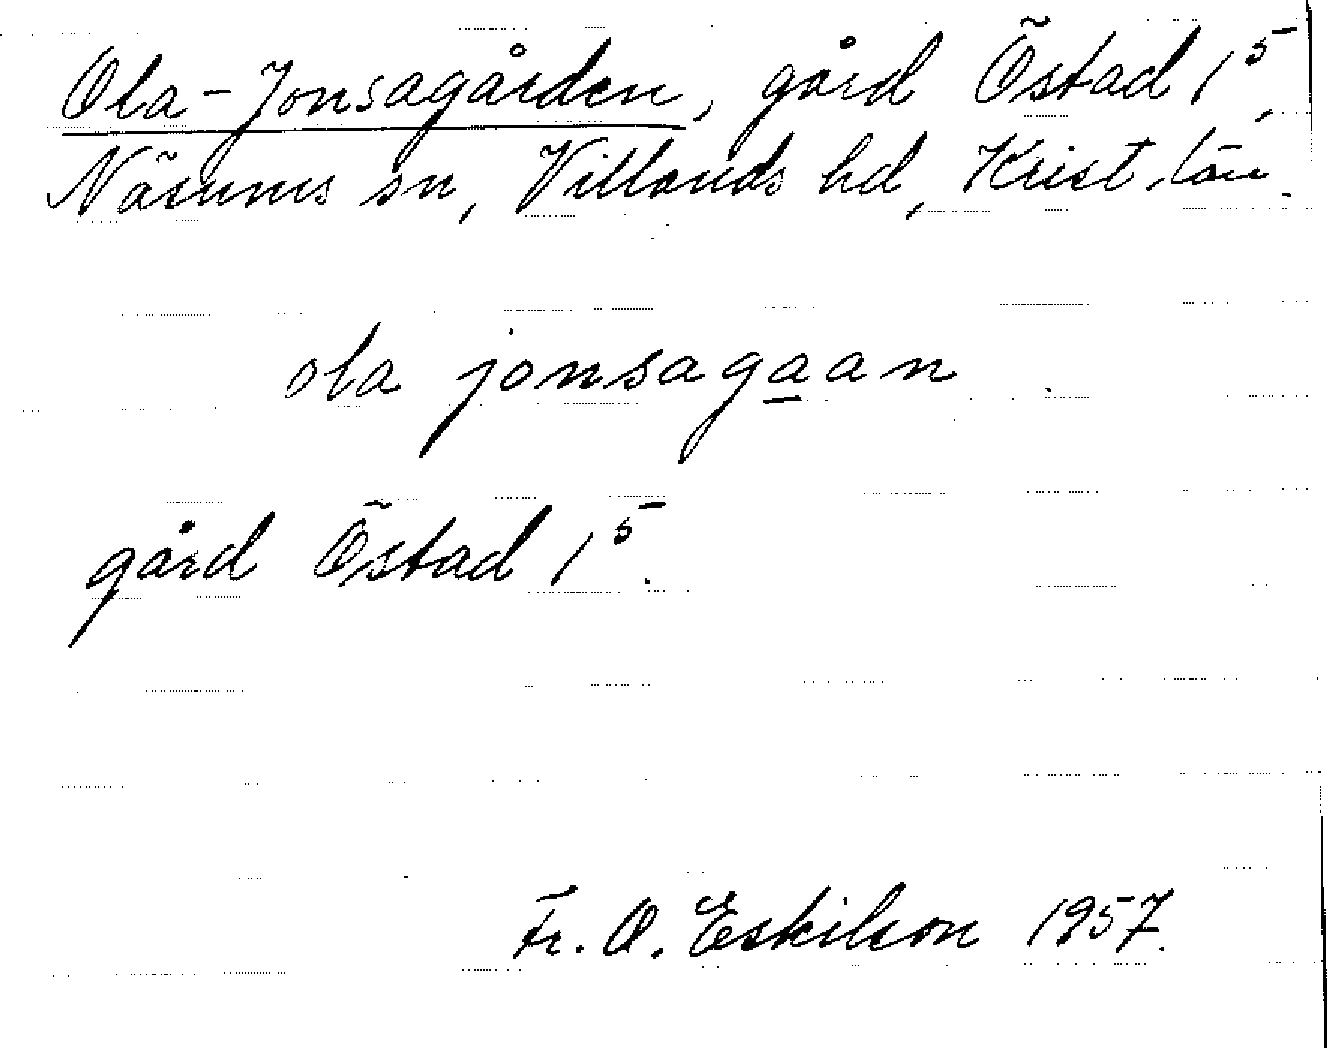 Ola-Jonsagården, gård Östad 1⁵,
Näsums sn, Villands hd, Krist. län.
ola jonsagaan
gård Östad 1⁵.
Fr. O. Eskilson 1957.